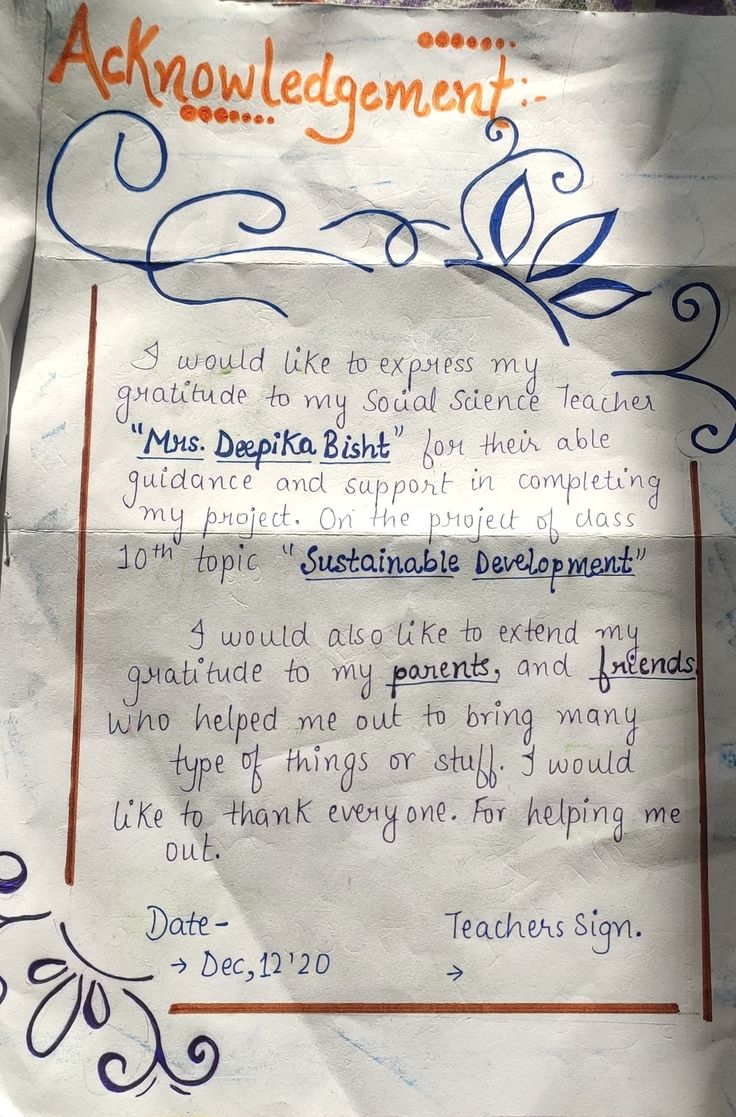 Acknowledgement:-
I would like to express my
gratitude to my Social Science Teacher
"Mrs. Deepika Bisht" for their able
guidance and support in completing
my project. On the project of class
10th topic "Sustainable Development"
I would also like to extend my
gratitude to my parents, and friends
who helped me out to bring many
type of things or stuff. I would
like to thank everyone. For helping me
out.
Date-
→ Dec, 12'20
Teachers Sign.
→